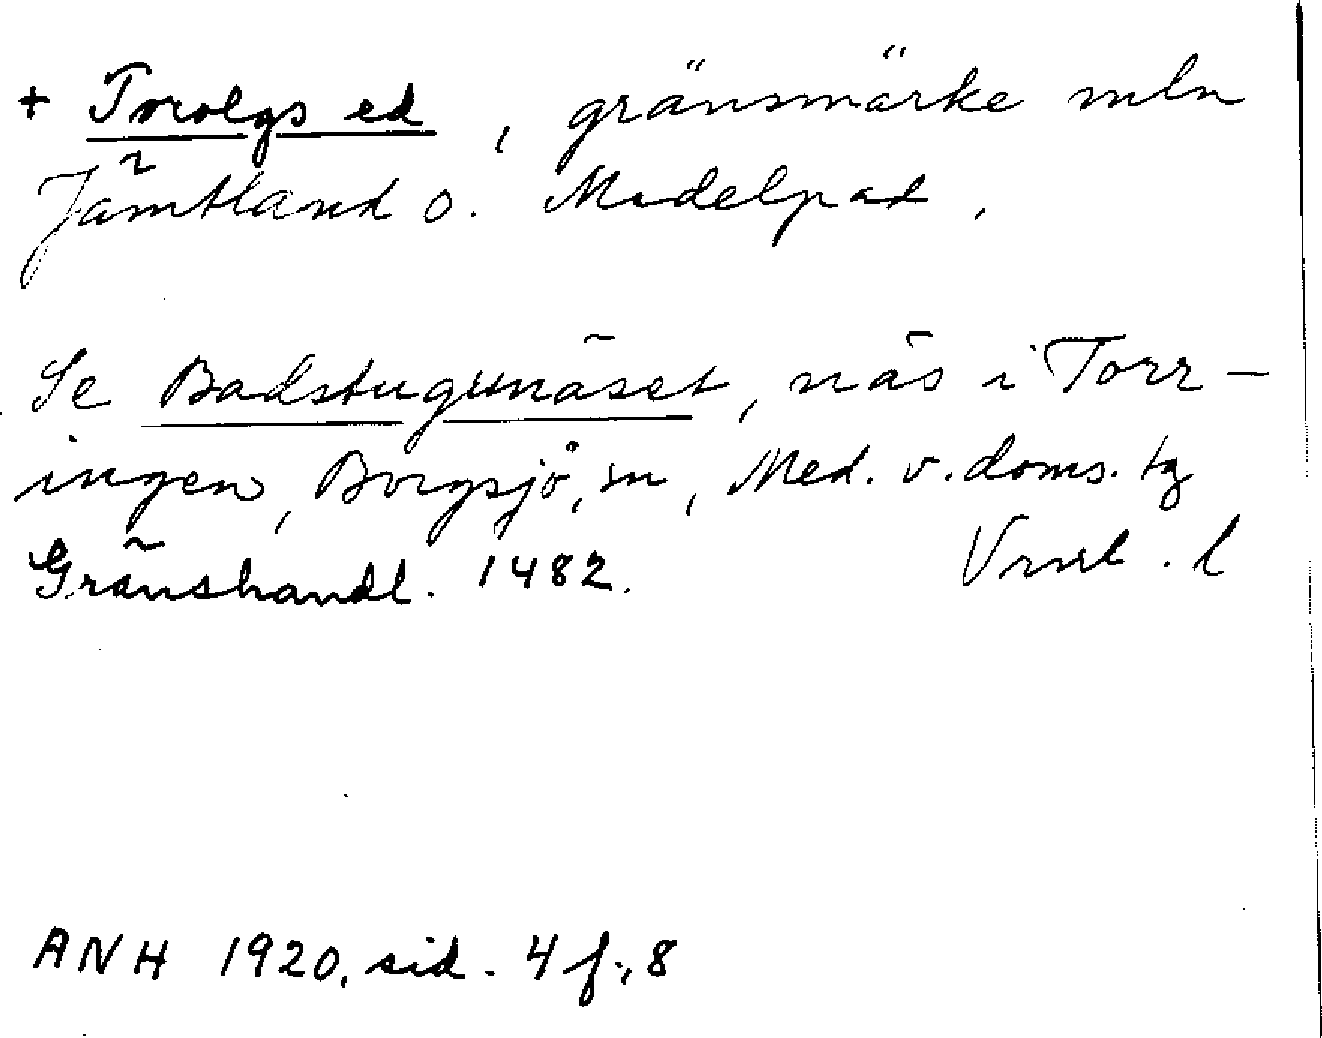 + Torolgs ed, gränsmärke mln
Jämtland o. Medelpad.
Se Badstugunäset, näs i Torr-
ingen, Borgsjö sn, Med. v. doms. tg
Gränshandl. 1482.
ANH 1920, sid. 4 f., 8